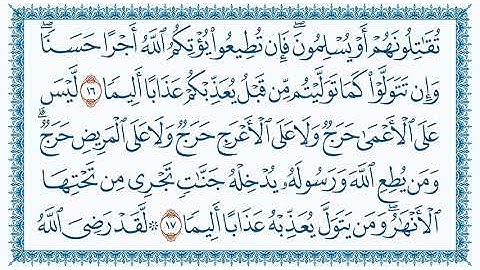 تُقَٰتِلُونَهُمْ أَوْ يُسْلِمُونَ ۖ فَإِن تُطِيعُوا۟ يُؤْتِكُمُ ٱللَّهُ أَجْرًا حَسَنًا ۖ
وَإِن تَتَوَلَّوْا۟ كَمَا تَوَلَّيْتُم مِّن قَبْلُ يُعَذِّبْكُمْ عَذَابًا أَلِيمًا ١٦ لَّيْسَ
عَلَى ٱلْأَعْمَىٰ حَرَجٌ وَلَا عَلَى ٱلْأَعْرَجِ حَرَجٌ وَلَا عَلَى ٱلْمَرِيضِ حَرَجٌ ۗ
وَمَن يُطِعِ ٱللَّهَ وَرَسُولَهُۥ يُدْخِلْهُ جَنَّٰتٍ تَجْرِى مِن تَحْتِهَا
ٱلْأَنْهَٰرُ ۖ وَمَن يَتَوَلَّ يُعَذِّبْهُ عَذَابًا أَلِيمًا ١٧ ۞ لَّقَدْ رَضِىَ ٱللَّهُ